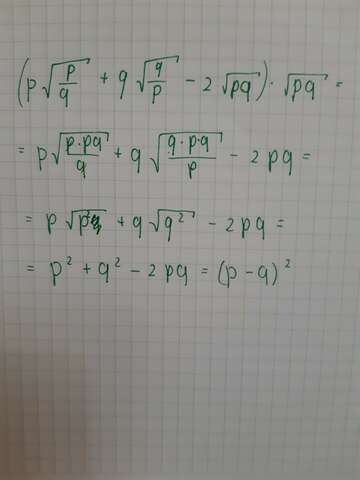 (p√(p/q) + q√(q/p) - 2√(pq)) · √(pq) =
= p√(p·pq/q) + q√(q·p·q/p) - 2pq =
= p√(p²) + q√(q²) - 2pq =
= p² + q² - 2pq = (p - q)²